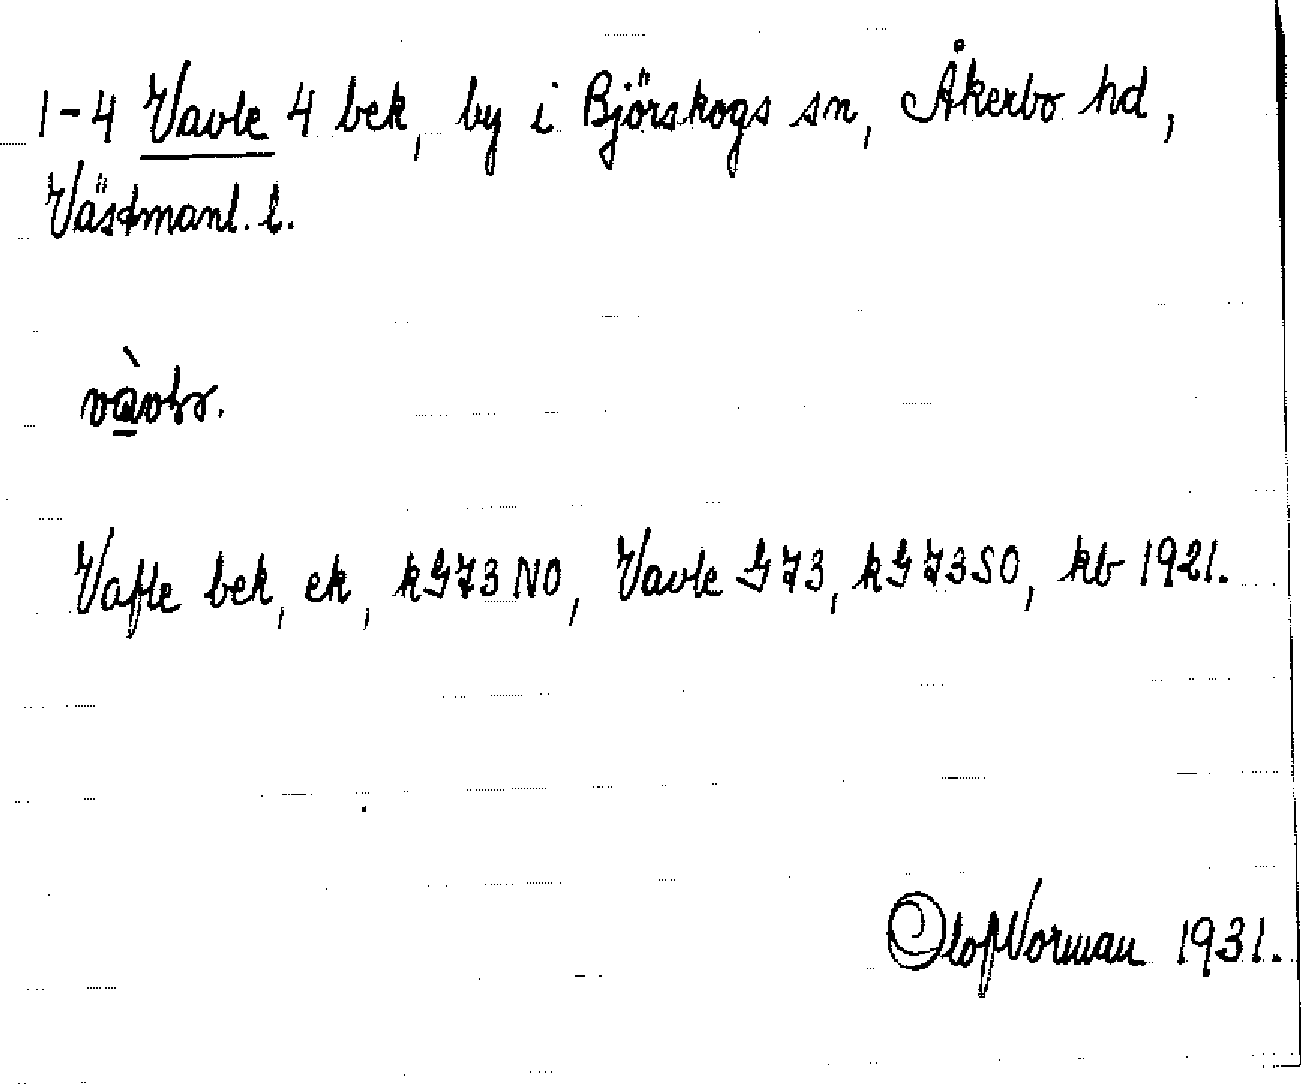 1-4 Vavle 4 bek, by i Björskogs sn, Åkerbo hd,
Västmanl. l.
Vafle bek, ek, kG73NO, Vavle G73, kG73SO, kb 1921.
Olof Norman 1931.